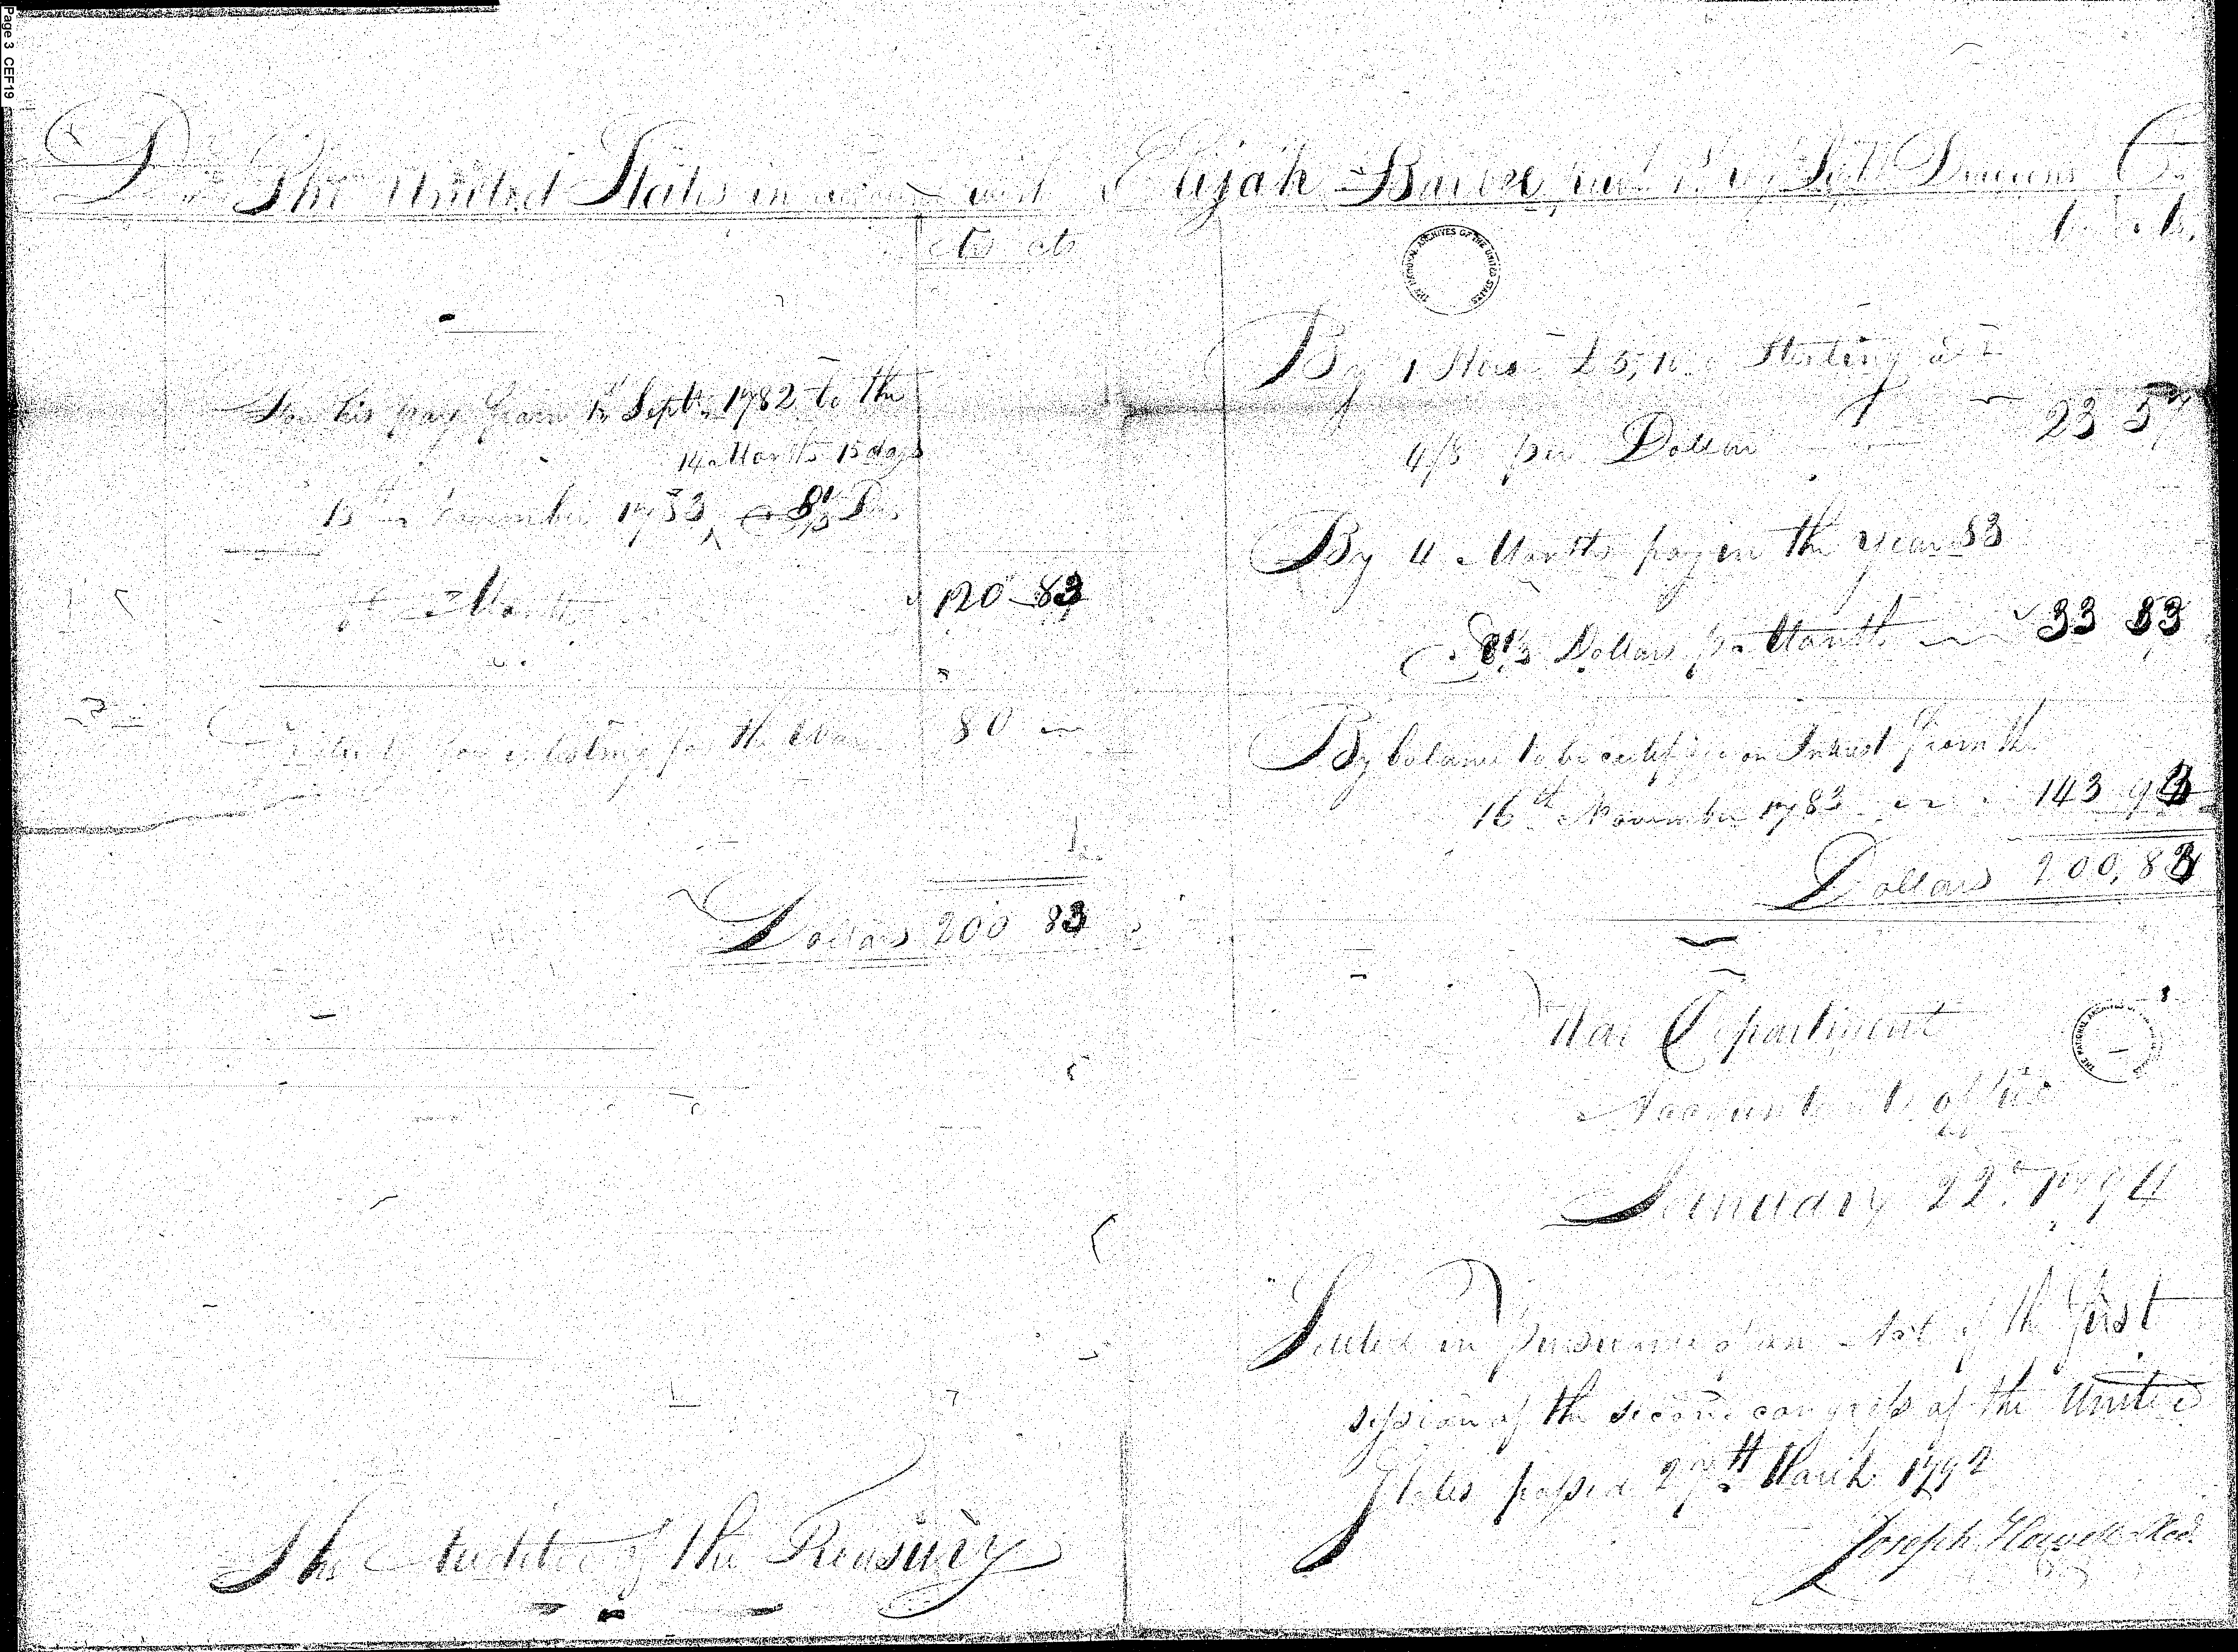 Page 3 CEF19
Dr The United States in account with Elijah Dragoons Cr
THE NATIONAL ARCHIVES OF THE UNITED STATES
For his pay from 1st Septr. 1782 to the
14 Months 15 days
15th November 1783, @ 8 1/3 Drs
Month 120 83
Gratuity for enlisting for the War 80
Dollars 200 83
By 1 Sterling at
4/8 per Dollar 23 57
By 4 Months pay in the year 83
@ 8 1/3 Dollars pr Month 33 33
By balance to be certified on Interest from the
16th November 1783 143 93
Dollars 200,83
War Department
Accountants office
January 22d 1794
Settled in pursuance of an Act of the first
session of the second congress of the United
States passed 27th March 1792
Joseph Howell Acct
The Auditor of the Treasury